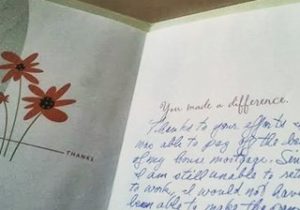 THANKS
You made a difference.
Thanks to your efforts I
was able to pay off the
of my house mortgage.
I am still unable to
to work, I would not have
been able to make the